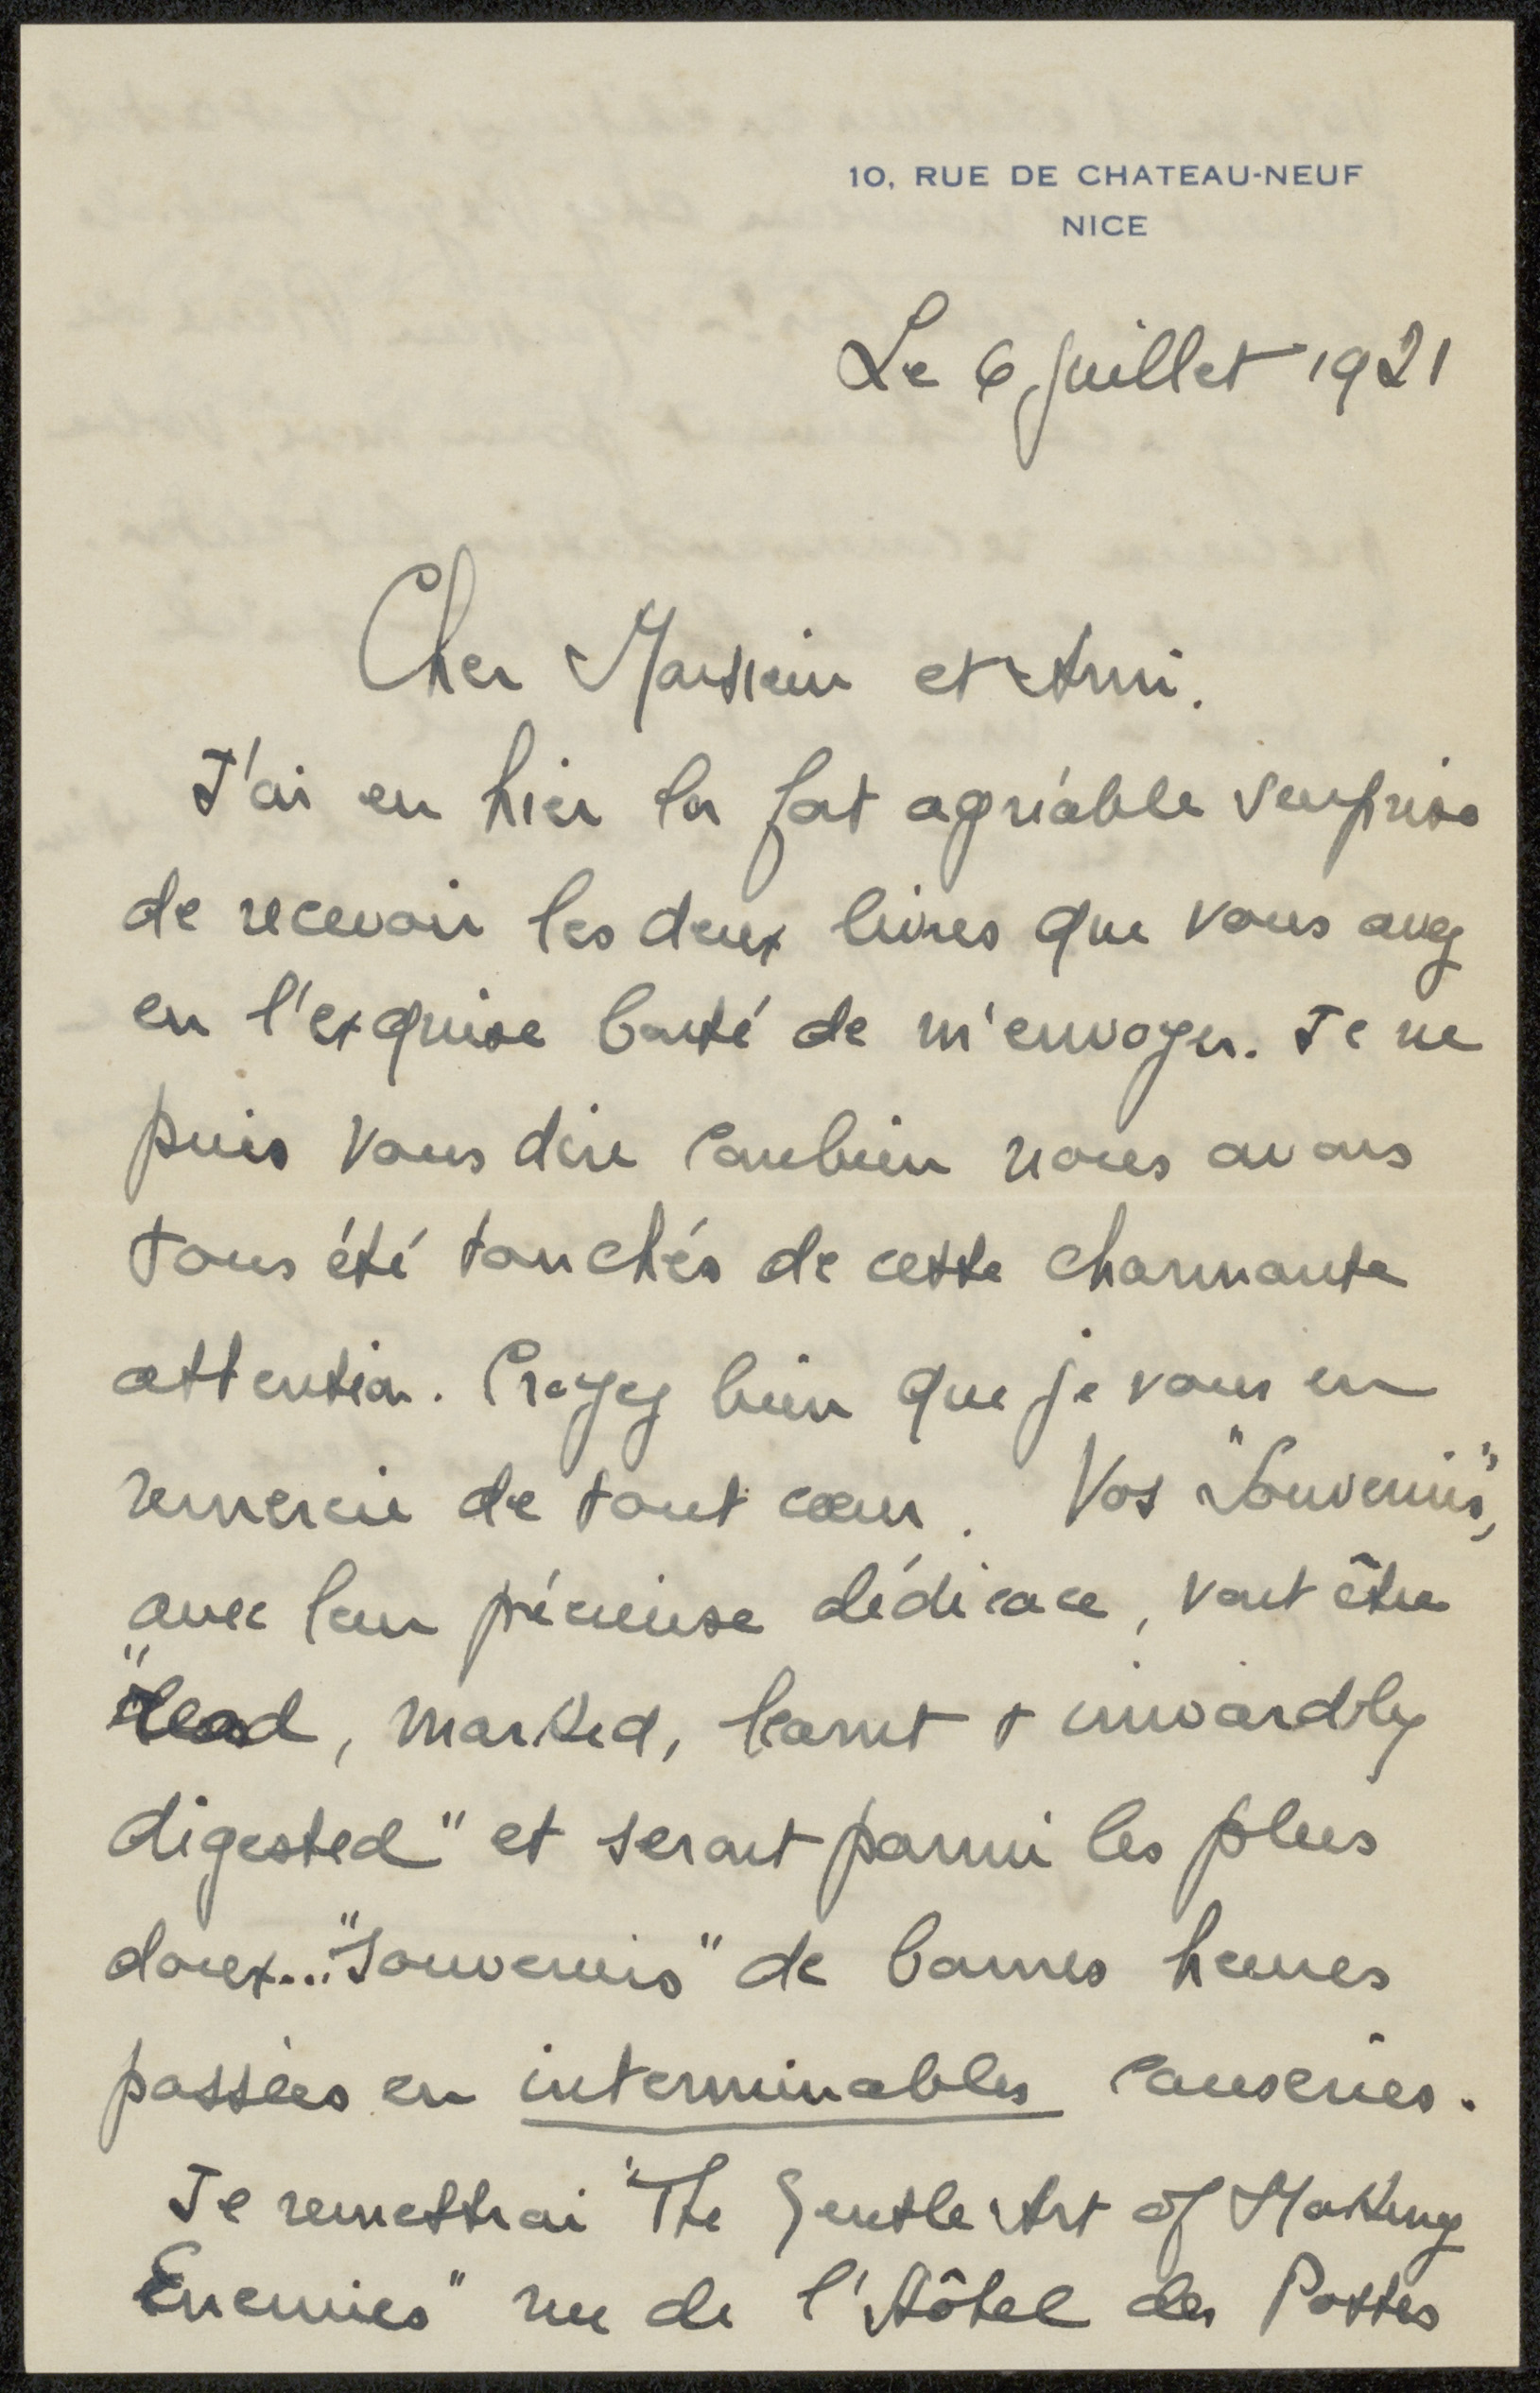 10, RUE DE CHATEAU-NEUF
NICE
Le 6 juillet 1921
Cher Monsieur et Ami.
J'ai eu hier la fort agréable surprise
de recevoir les deux livres que vous avez
eu l'exquise bonté de m'envoyer. Je ne
puis vous dire combien nous avons
tous été touchés de cette charmante
attention. Croyez bien que je vous en
remercie de tout cœur. Vos "Souvenirs",
avec leur précieuse dédicace, vont être
"read, marked, learnt & inwardly
digested" et seront parmi les plus
doux... "souvenirs" de bonnes heures
passées en interminables causeries.
Je remettrai "The Gentle Art of Making
Enemies" rue de l'Hôtel des Postes